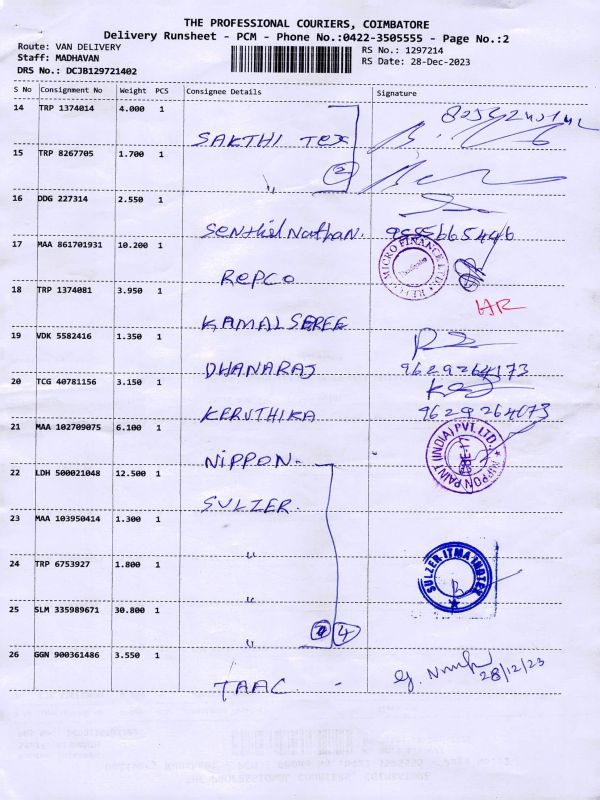 THE PROFESSIONAL COURIERS, COIMBATORE
Delivery Runsheet - PCM - Phone No.:0422-3505555 - Page No.:2
Route: VAN DELIVERY
RS No.: 1297214
Staff: MADHAVAN
RS Date: 28-Dec-2023
DRS No.: DCJB129721402
S No Consignment No Weight PCS Consignee Details Signature
14 TRP 1374014 4.000 1
SAKTHI TEX
15 TRP 8267705 1.700 1
" 2
16 DDG 227314 2.550 1
Senthil Nathan. 9555665446
17 MAA 861701931 10.200 1
REPCO MICRO FINANCE LTD.
Repco
HR
18 TRP 1374081 3.950 1
KAMALSEREE
19 VDK 5582416 1.350 1
DHANARAJ 9629264173
20 TCG 40781156 3.150 1
KERUTHIKA 9629264173
21 MAA 102709075 6.100 1
NIPPON PAINT (INDIA) PVT. LTD.
NIPPON.
22 LDH 500021048 12.500 1
SULZER.
23 MAA 103950414 1.300 1
"
24 TRP 6753927 1.800 1
SULZER ITMA INDTEX
"
25 SLM 335989671 30.800 1
" 4
26 GGN 900361486 3.550 1
TAAC - 28/12/23